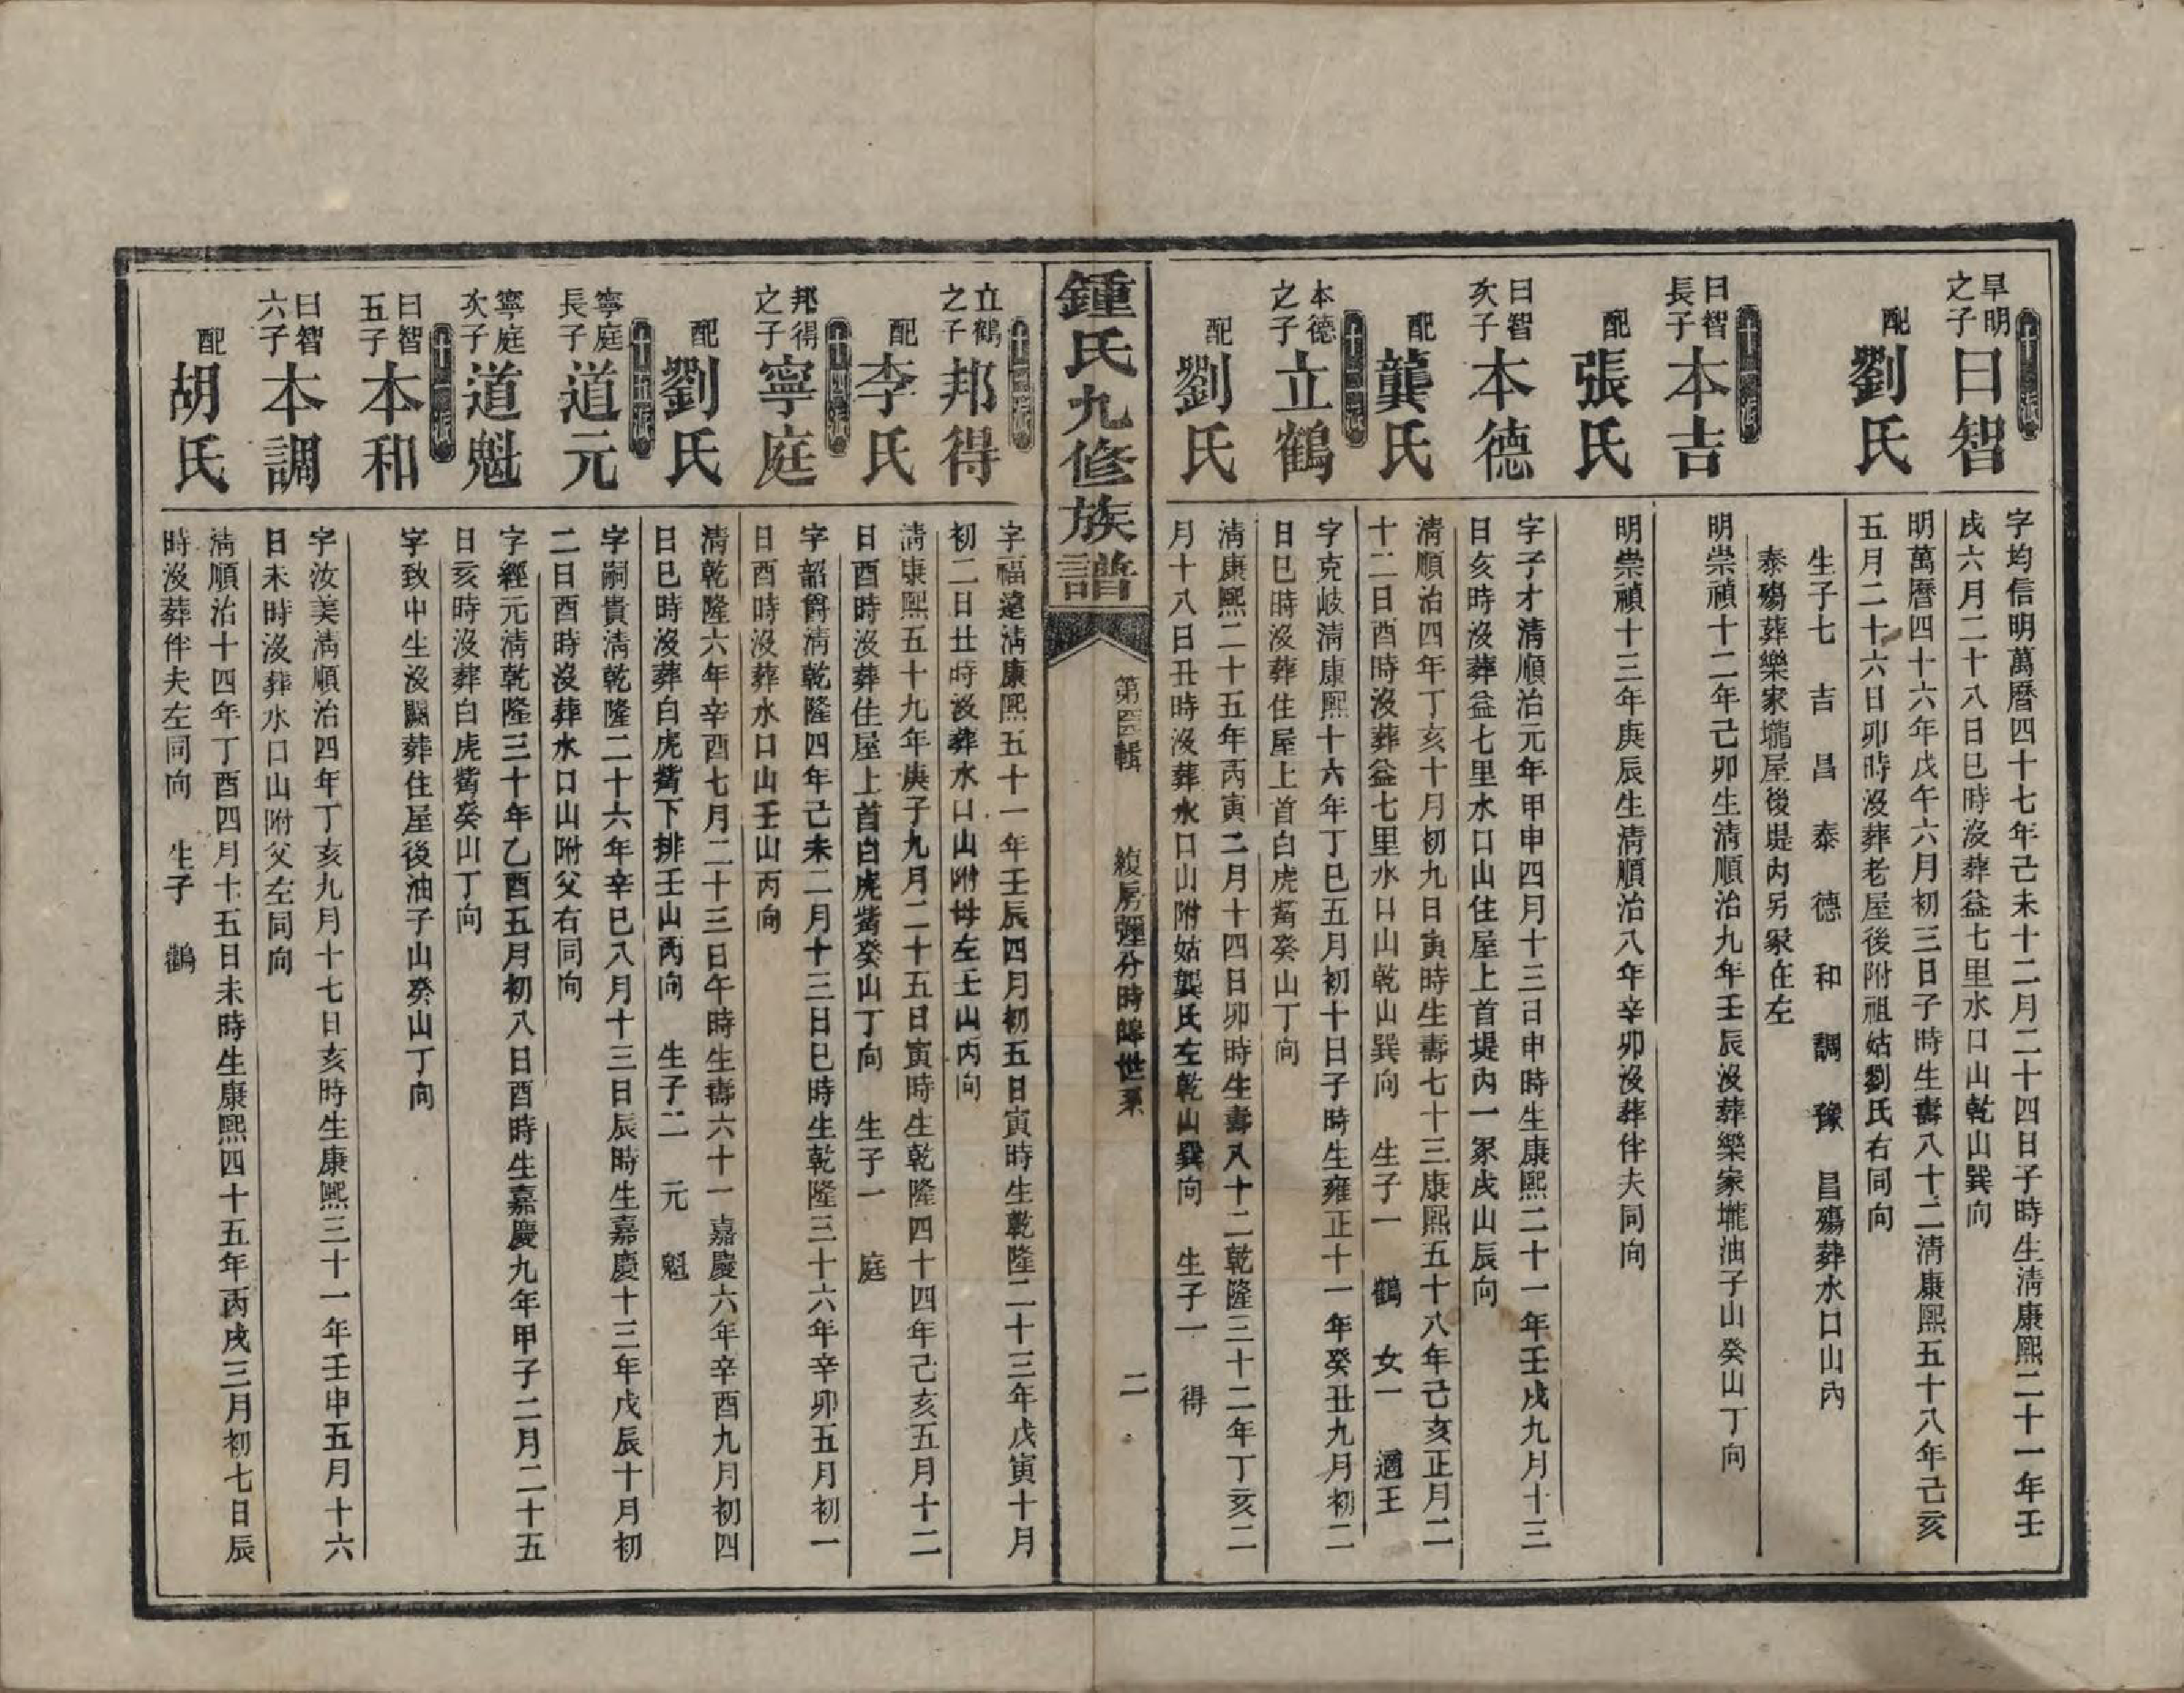 十一派
早明之子
曰智
字均信明萬曆四十七年己未十二月二十四日子時生淸康熙二十一年壬
戌六月二十八日巳時沒葬益七里水口山乾山巽向
配
劉氏
明萬曆四十六年戊午六月初三日子時生壽八十二淸康熙五十八年己亥
五月二十六日卯時沒葬老屋後附祖姑劉氏右同向
生子七 吉 昌 泰 德 和 調 豫 昌殤葬水口山內
泰殤葬樂家壠屋後堤內另冢在左
十二派
曰智長子
本吉
明崇禎十二年己卯生淸順治九年壬辰沒葬樂家壠油子山癸山丁向
配
張氏
明崇禎十三年庚辰生淸順治八年辛卯沒葬伴夫同向
曰智次子
本德
字子才淸順治元年甲申四月十三日申時生康熙二十一年壬戌九月十三
日亥時沒葬益七里水口山住屋上首堤內一冢戌山辰向
配
龔氏
淸順治四年丁亥十月初九日寅時生壽七十三康熙五十八年己亥正月二
十二日酉時沒葬益七里水口山乾山巽向 生子一 鶴 女一 適王
十三派
本德之子
立鶴
字克岐淸康熙十六年丁巳五月初十日子時生雍正十一年癸丑九月初二
日巳時沒葬住屋上首白虎觜癸山丁向
配
劉氏
淸康熙二十五年丙寅二月十四日卯時生壽八十二乾隆三十二年丁亥二
月十八日丑時沒葬水口山附姑龔氏左乾山巽向 生子一 得
鍾氏九修族譜
第四輯
房 分時 世系
二
立鶴之子
邦得
字福遠淸康熙五十一年壬辰四月初五日寅時生乾隆二十三年戊寅十月
初二日丑時沒葬水口山附母左壬山丙向
配
李氏
淸康熙五十九年庚子九月二十五日寅時生乾隆四十四年己亥五月十二
日酉時沒葬住屋上首白虎觜癸山丁向 生子一 庭
十四派
邦得之子
寧庭
字韶爵淸乾隆四年己未二月十三日巳時生乾隆三十六年辛卯五月初一
日酉時沒葬水口山壬山丙向
配
劉氏
淸乾隆六年辛酉七月二十三日午時生壽六十一嘉慶六年辛酉九月初四
日巳時沒葬白虎觜下排壬山丙向 生子二 元 魁
十五派
寧庭長子
道元
字嗣貴淸乾隆二十六年辛巳八月十三日辰時生嘉慶十三年戊辰十月初
二日酉時沒葬水口山附父右同向
寧庭次子
道魁
字經元淸乾隆三十年乙酉五月初八日酉時生嘉慶九年甲子二月二十五
日亥時沒葬白虎觜癸山丁向
十二派
曰智五子
本和
字致中生沒闕葬住屋後油子山癸山丁向
曰智六子
本調
字汝美淸順治四年丁亥九月十七日亥時生康熙三十一年壬申五月十六
日未時沒葬水口山附父左同向
配
胡氏
淸順治十四年丁酉四月十五日未時生康熙四十五年丙戌三月初七日辰
時沒葬伴夫左同向 生子 鸖